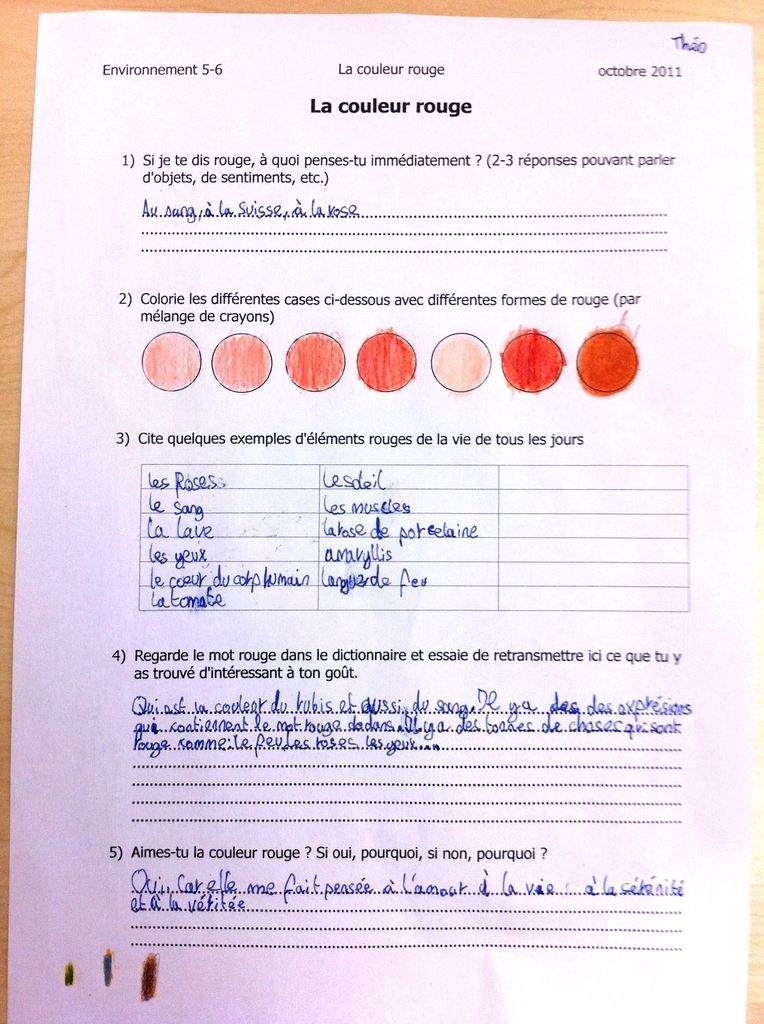 Théo
Environnement 5-6 La couleur rouge octobre 2011
La couleur rouge
1) Si je te dis rouge, à quoi penses-tu immédiatement ? (2-3 réponses pouvant parler
d'objets, de sentiments, etc.)
Au sang, à la Suisse, à la rose
2) Colorie les différentes cases ci-dessous avec différentes formes de rouge (par
mélange de crayons)
3) Cite quelques exemples d'éléments rouges de la vie de tous les jours
les Roses Lesoleil
le sang les muscles
la lave larose de porcelaine
les yeux amaryllis
le coeur du corp humain langue de feu
la tomate
4) Regarde le mot rouge dans le dictionnaire et essaie de retransmettre ici ce que tu y
as trouvé d'intéressant à ton goût.
Qui est la couleur du rubis et aussi du sang. Il y a des des expresions
qui contiennent le mot rouge dedans. Il y a des tonnes de choses qui sont
rouge comme: le feu les roses les yeux...
5) Aimes-tu la couleur rouge ? Si oui, pourquoi, si non, pourquoi ?
Oui, Car elle me fait pensée à l'amour à la vie à la sérénité
et à la véritée